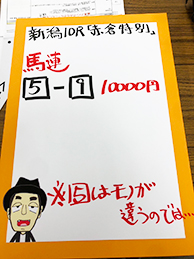 新潟10R「赤倉特別」
馬連
5-9 10000円
※⑤はモノが
違うのでは…